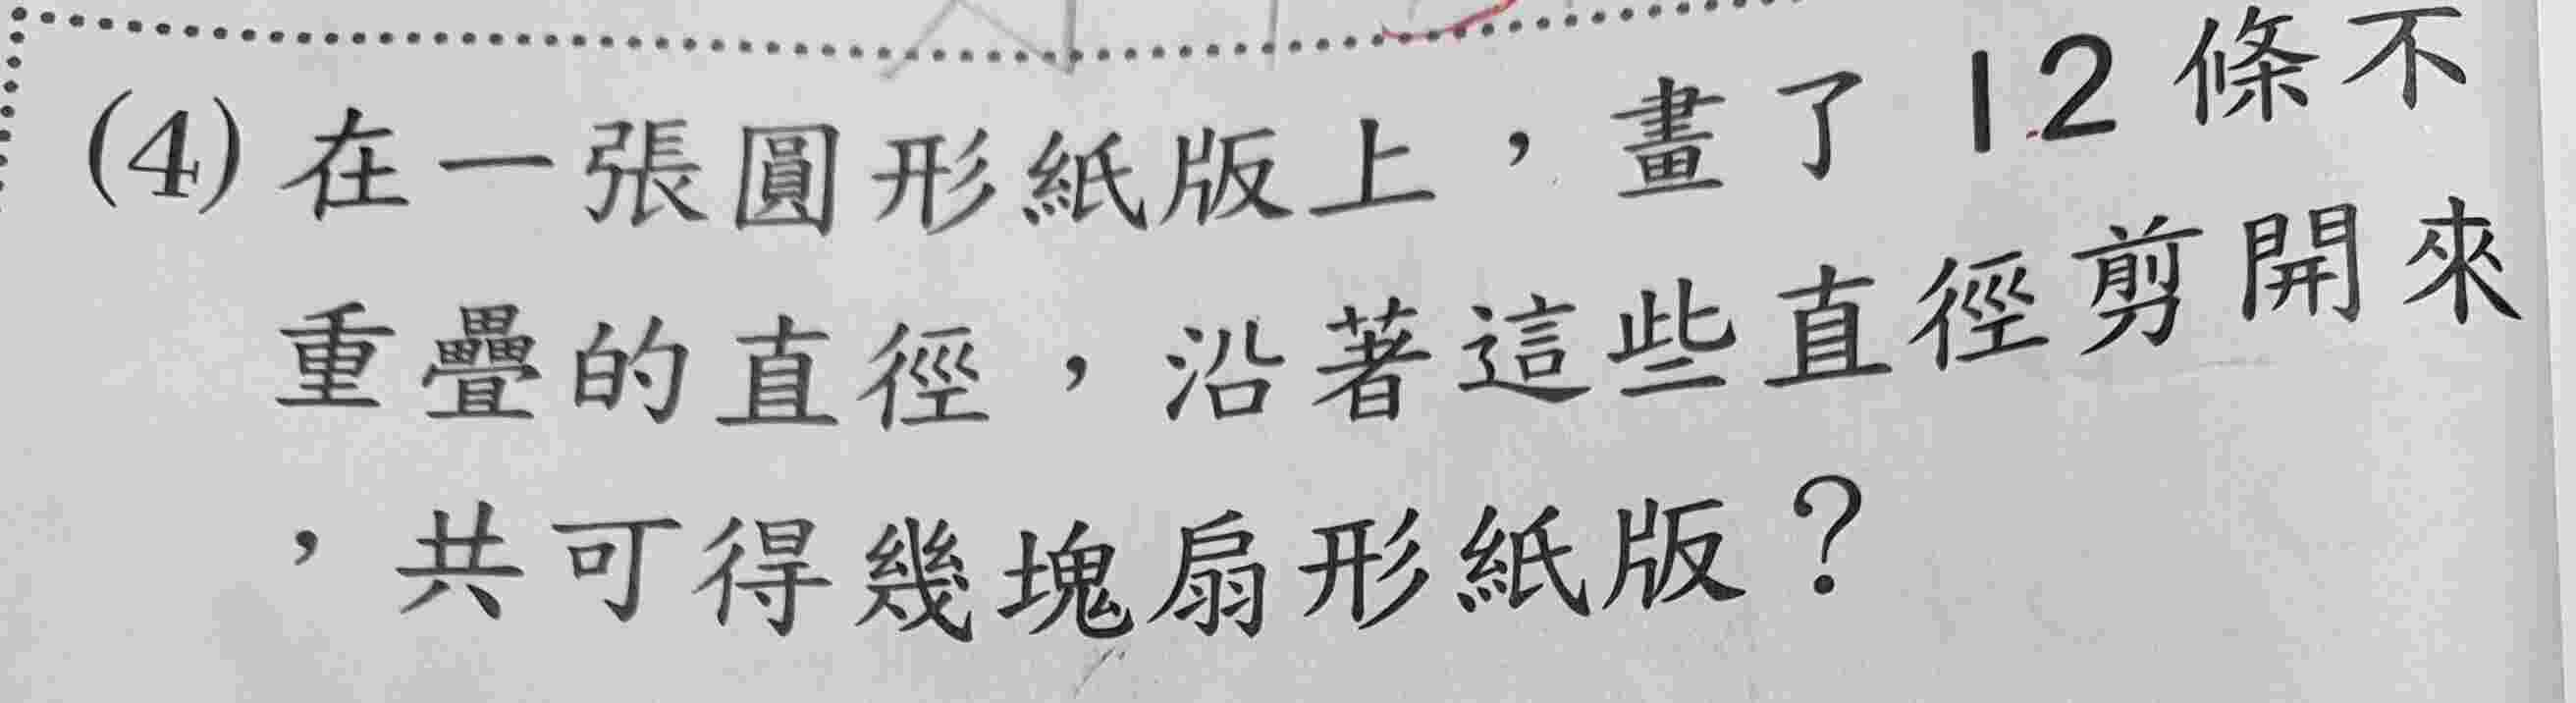 (4) 在一張圓形紙版上，畫了 12 條不
重疊的直徑，沿著這些直徑剪開來
，共可得幾塊扇形紙版？